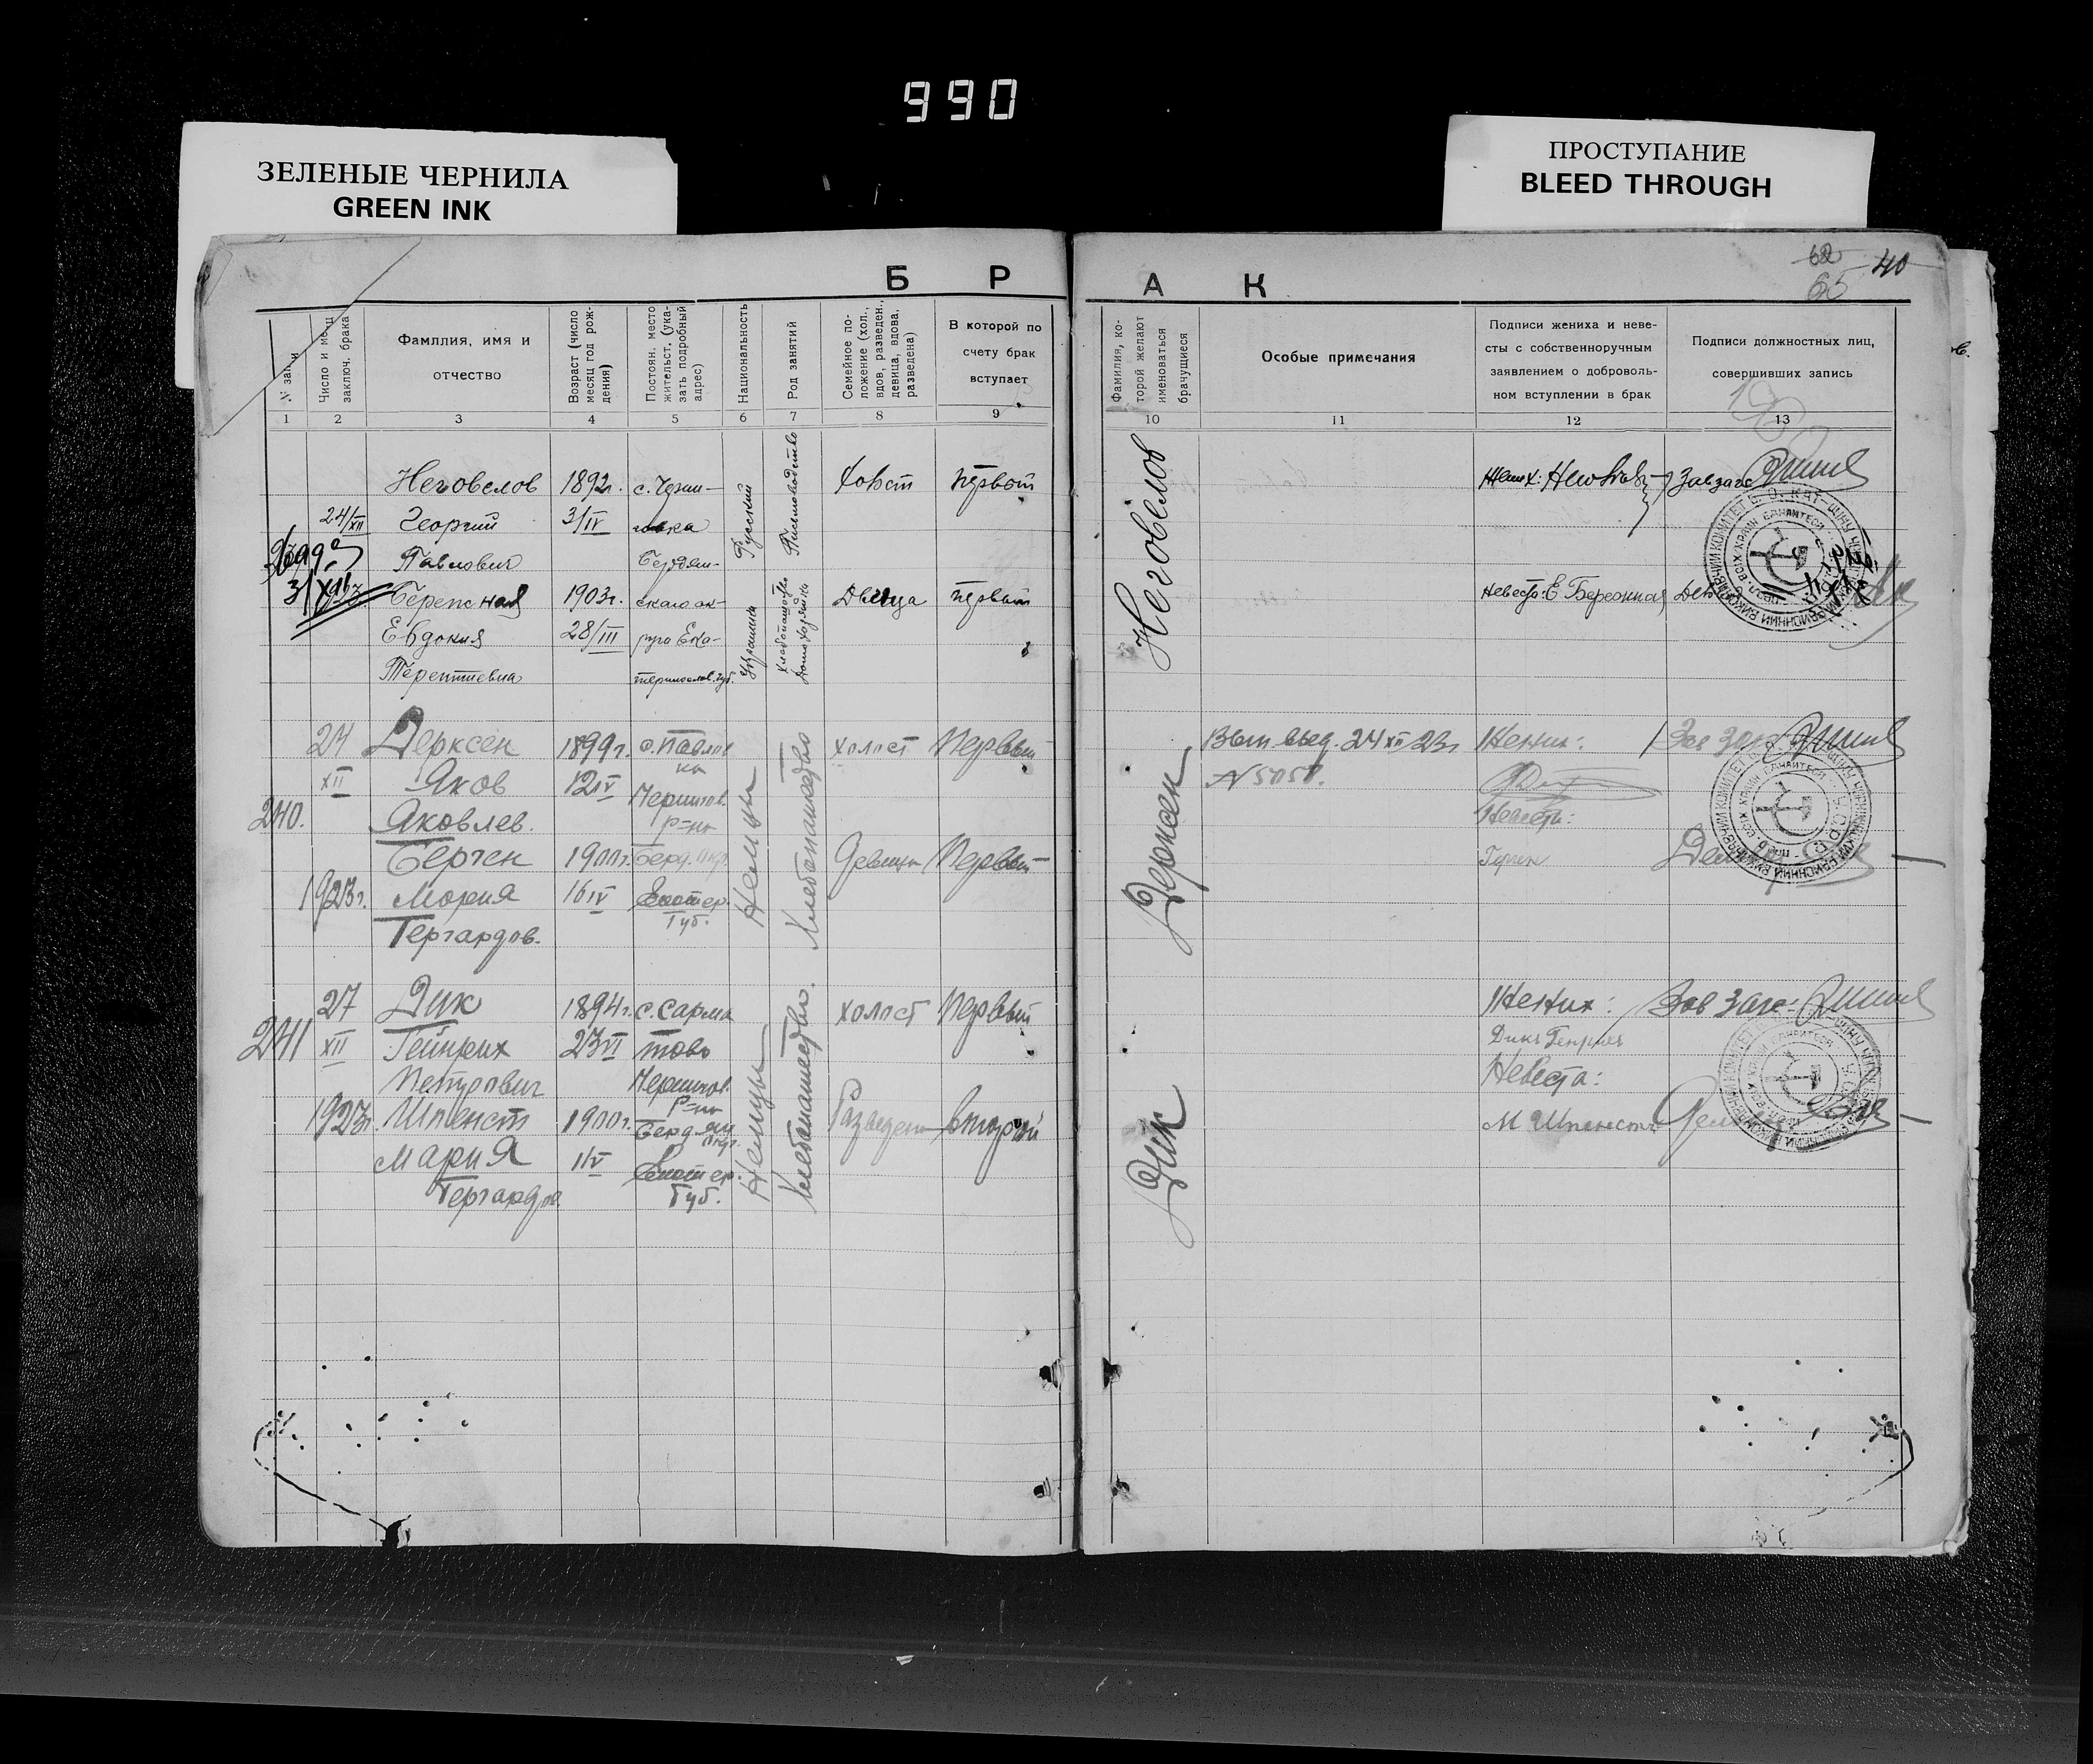 990
ЗЕЛЕНЫЕ ЧЕРНИЛА
GREEN INK
ПРОСТУПАНИЕ
BLEED THROUGH
62
65
40
Б Р А К
№ записи
Число и месяц заключ. брака
Фамллия, имя и отчество
Возраст (число месяц год рождения)
Постоян. место жительст, (указать подробный адрес)
Национальность
Род занятий
Семейное положение (хол., вдов, разведен., девица, вдова, разведена)
В которой по счету брак вступает
Фамилия, которой желают именоваться брачущиеся
Особые примечания
Подписи жениха и невесты с собственноручным заявлением о добровольном вступлении в брак
Подписи должностных лиц, совершивших запись
1 2 3 4 5 6 7 8 9 10 11 12 13
Неговелов 1892г. с. Черни- Холост первый
24/XII Георгий 3/IV говка
Павлович Бердян-
Русский
Письмоводство
Бережная 1903г. ского ок- Девица первый
Евдокия 28/III руга Ека-
Терентиевна теринослав. губ.
Украинка
Хлебопашество
Домохозяйка
Неговелов
Жених:
Завзагс
Невеста: Е Бережная
24 Дерксен 1899г. с. Павлов Холост Первый
XII Яков 12IV ка
Чернигов.
240. Яковлев. Р-на
Герцен 1900г. Берд. окр. Девица Первый
1923г. Мария 16IV Екатер.
Гергардов. Губ.
Немцы
Хлебопашество
Дерксен
Вып. выд. 24 XII 23г.
№ 5058.
Жених:
Невеста:
Зав загс
27 Дик 1894г. с. Сарма Холост Первый
241 XII Гейнрих 23VI тово
Петрович Чернигов.
Р-на
1923г. Шпенст 1900г. Бердян Разведена второй
окр.
Мария 11V Екатер.
Гергардов. Губ.
Немцы
Хлебопашество.
Дик
Жених:
Дик Генрих
Невеста:
М Шпенст
Зав загс: